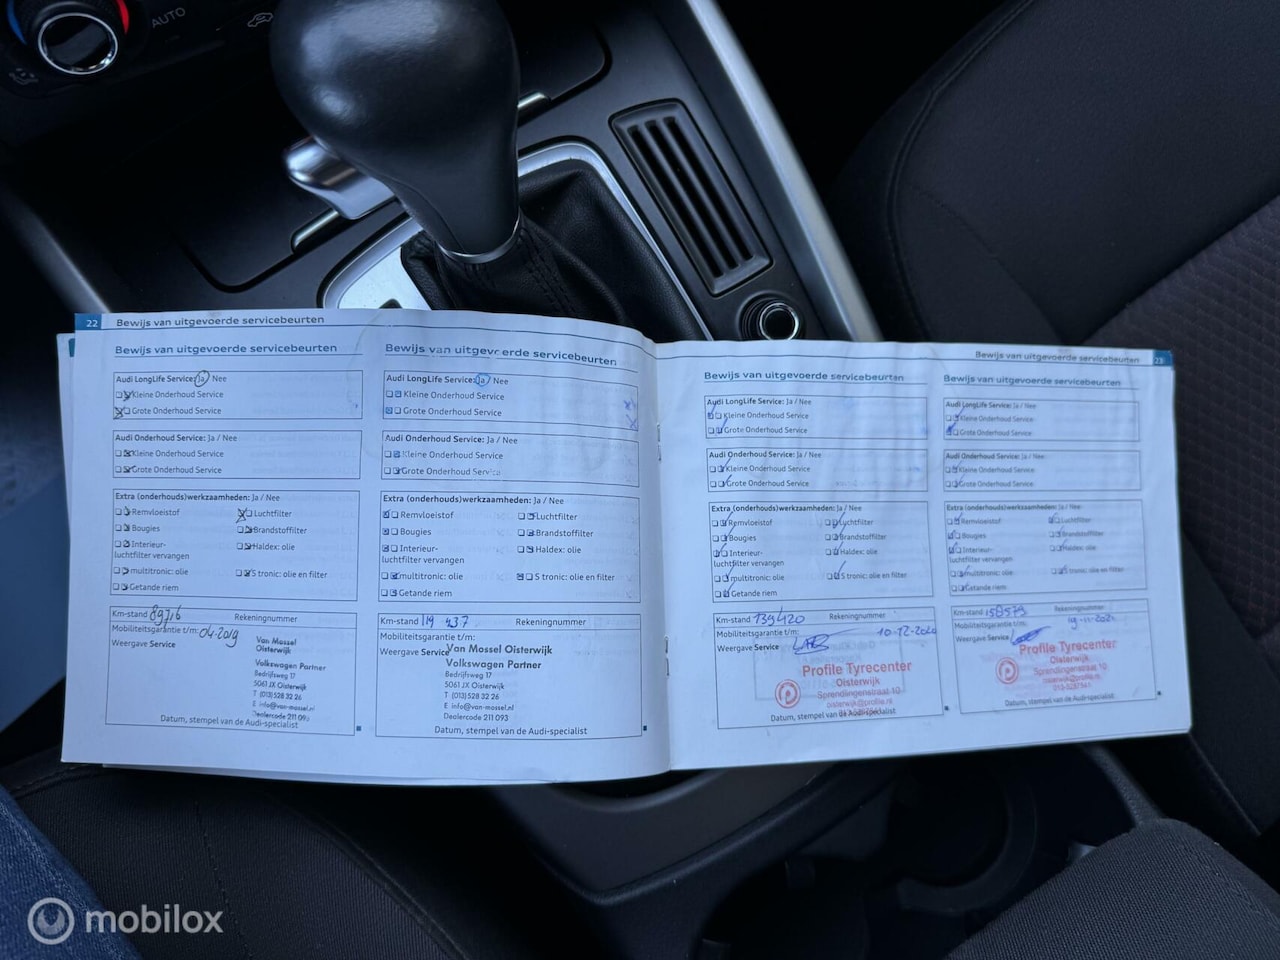 AUTO
22 Bewijs van uitgevoerde servicebeurten
Bewijs van uitgevoerde servicebeurten
Audi LongLife Service: Ja / Nee
Kleine Onderhoud Service
Grote Onderhoud Service
Audi Onderhoud Service: Ja / Nee
Kleine Onderhoud Service
Grote Onderhoud Service
Extra (onderhouds)werkzaamheden: Ja / Nee
Remvloeistof Luchtfilter
Bougies Brandstoffilter
Interieur- Haldex: olie
luchtfilter vervangen
multitronic: olie S tronic: olie en filter
Getande riem
Km-stand 89716 Rekeningnummer
Mobiliteitsgarantie t/m: 04-2019
Weergave Service
Van Mossel
Oisterwijk
Volkswagen Partner
Bedrijfsweg 17
5061 JX Oisterwijk
T (013) 528 32 26
E info@van-mossel.nl
Dealercode 211 093
Datum, stempel van de Audi-specialist
Bewijs van uitgevoerde servicebeurten
Audi LongLife Service: Ja / Nee
Kleine Onderhoud Service
Grote Onderhoud Service
Audi Onderhoud Service: Ja / Nee
Kleine Onderhoud Service
Grote Onderhoud Service
Extra (onderhouds)werkzaamheden: Ja / Nee
Remvloeistof Luchtfilter
Bougies Brandstoffilter
Interieur- Haldex: olie
luchtfilter vervangen
multitronic: olie S tronic: olie en filter
Getande riem
Km-stand 119 437 Rekeningnummer
Mobiliteitsgarantie t/m:
Weergave Service
Van Mossel Oisterwijk
Volkswagen Partner
Bedrijfsweg 17
5061 JX Oisterwijk
T (013) 528 32 26
E info@van-mossel.nl
Dealercode 211 093
Datum, stempel van de Audi-specialist
Bewijs van uitgevoerde servicebeurten 23
Bewijs van uitgevoerde servicebeurten
Audi LongLife Service: Ja / Nee
Kleine Onderhoud Service
Grote Onderhoud Service
Audi Onderhoud Service: Ja / Nee
Kleine Onderhoud Service
Grote Onderhoud Service
Extra (onderhouds)werkzaamheden: Ja / Nee
Remvloeistof Luchtfilter
Bougies Brandstoffilter
Interieur- Haldex: olie
luchtfilter vervangen
multitronic: olie S tronic: olie en filter
Getande riem
Km-stand 139420 Rekeningnummer
Mobiliteitsgarantie t/m: 10-12-2020
Weergave Service
Profile Tyrecenter
Oisterwijk
Sprendlingenstraat 10
oisterwijk@profile.nl
013-5287541
Datum, stempel van de Audi-specialist
Bewijs van uitgevoerde servicebeurten
Audi LongLife Service: Ja / Nee
Kleine Onderhoud Service
Grote Onderhoud Service
Audi Onderhoud Service: Ja / Nee
Kleine Onderhoud Service
Grote Onderhoud Service
Extra (onderhouds)werkzaamheden: Ja / Nee
Remvloeistof Luchtfilter
Bougies Brandstoffilter
Interieur- Haldex: olie
luchtfilter vervangen
multitronic: olie S tronic: olie en filter
Getande riem
Km-stand 158579 Rekeningnummer
Mobiliteitsgarantie t/m: 19-11-2021
Weergave Service
Profile Tyrecenter
Oisterwijk
Sprendlingenstraat 10
oisterwijk@profile.nl
013-5287541
Datum, stempel van de Audi-specialist
mobilox